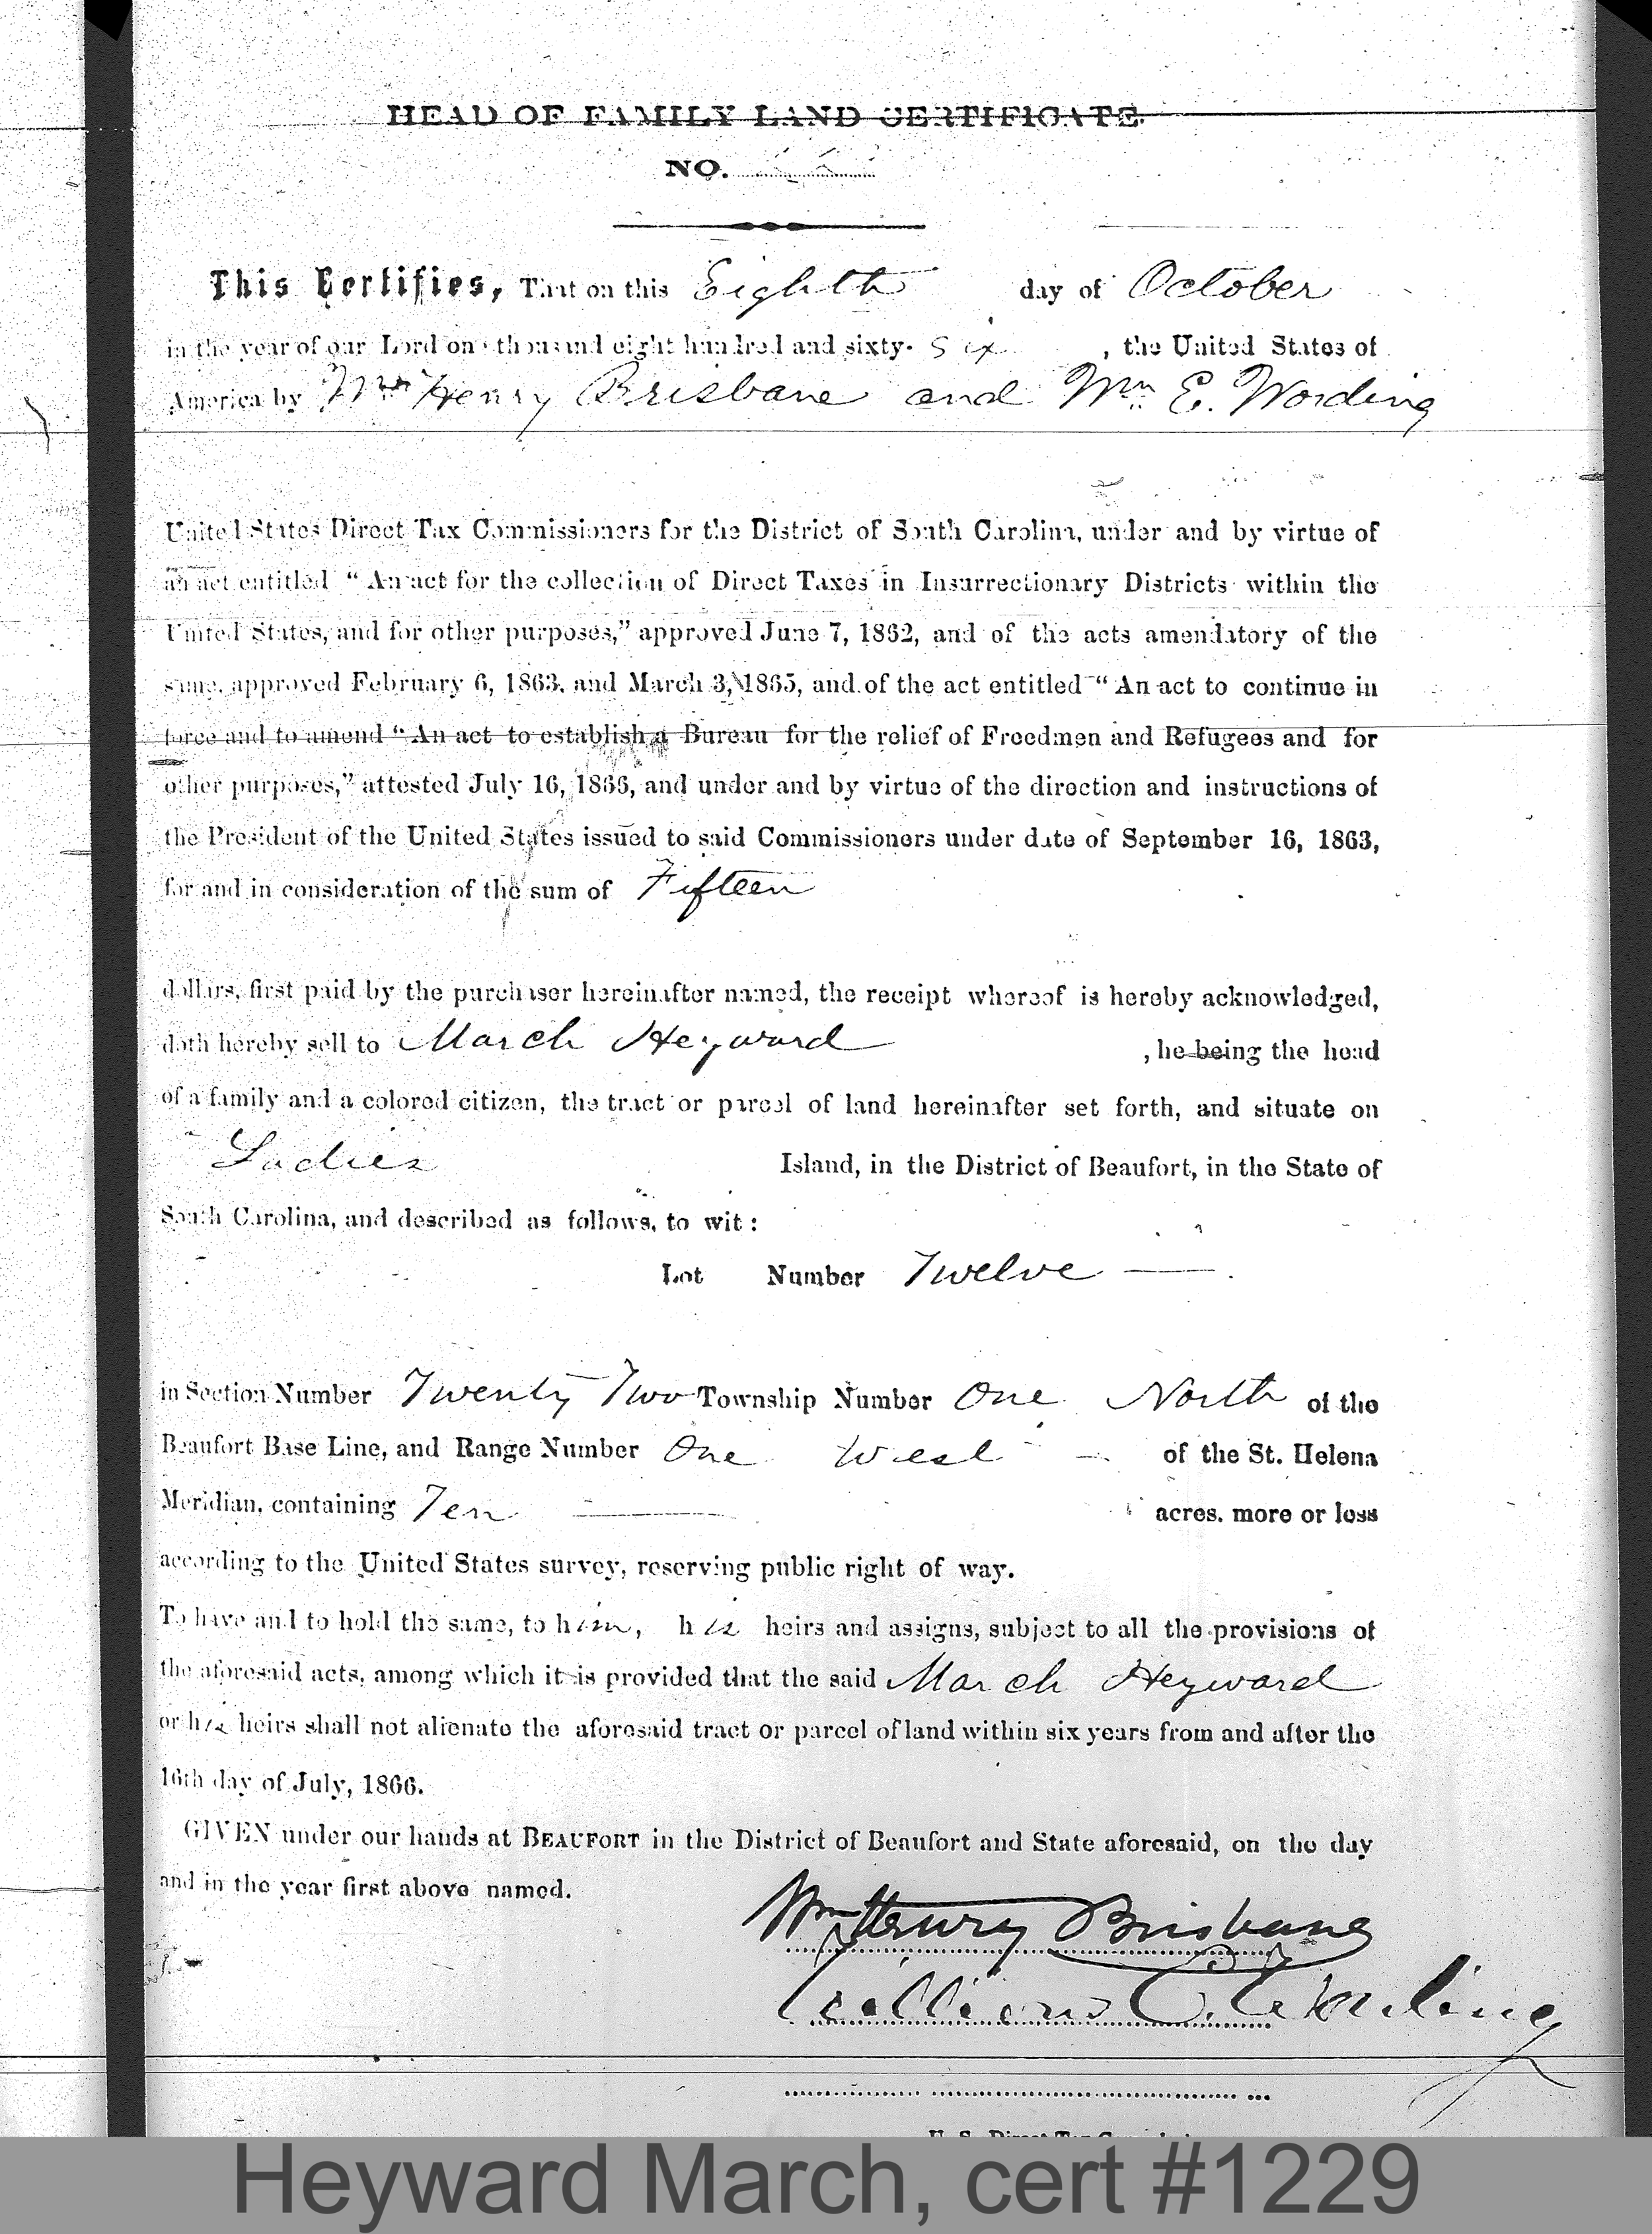 HEAD OF FAMILY LAND CERTIFICATE.
NO.
This Certifies, That on this Eighth day of October
in the year of our Lord one thousand eight hundred and sixty- six , the United States of
America by Wm Henry Brisbane and Wm E. Wording
United States Direct Tax Commissioners for the District of South Carolina, under and by virtue of
an act entitled “ An act for the collection of Direct Taxes in Insurrectionary Districts within the
United States, and for other purposes,” approved June 7, 1862, and of the acts amendatory of the
same, approved February 6, 1863, and March 3, 1865, and of the act entitled “ An act to continue in
force and to amend “ An act to establish a Bureau for the relief of Freedmen and Refugees and for
other purposes,” attested July 16, 1866, and under and by virtue of the direction and instructions of
the President of the United States issued to said Commissioners under date of September 16, 1863,
for and in consideration of the sum of Fifteen
dollars, first paid by the purchaser hereinafter named, the receipt whereof is hereby acknowledged,
doth hereby sell to March Heyward , he being the head
of a family and a colored citizen, the tract or parcel of land hereinafter set forth, and situate on
Ladies Island, in the District of Beaufort, in the State of
South Carolina, and described as follows, to wit :
Lot Number Twelve —.
in Section Number Twenty Two Township Number One North of the
Beaufort Base Line, and Range Number One West — of the St. Helena
Meridian, containing Ten — acres. more or less
according to the United States survey, reserving public right of way.
To have and to hold the same, to him, his heirs and assigns, subject to all the provisions of
the aforesaid acts, among which it is provided that the said March Heyward
or his heirs shall not alienate the aforesaid tract or parcel of land within six years from and after the
16th day of July, 1866.
GIVEN under our hands at BEAUFORT in the District of Beaufort and State aforesaid, on the day
and in the year first above named.
Wm Henry Brisbane
William E. Wording
Heyward March, cert #1229